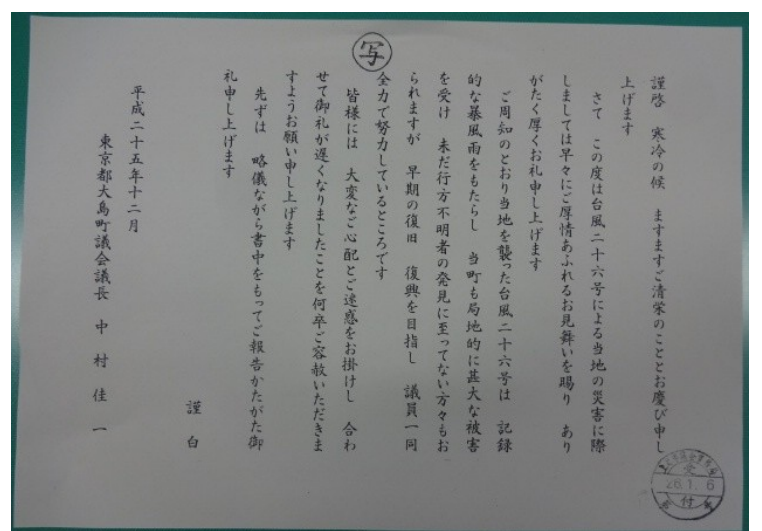 写
謹啓 寒冷の候 ますますご清栄のこととお慶び申し
上げます
さて この度は台風二十六号による当地の災害に際
しましては早々にご厚情あふれるお見舞いを賜り あり
がたく厚くお礼申し上げます
ご周知のとおり当地を襲った台風二十六号は 記録
的な暴風雨をもたらし 当町も局地的に甚大な被害
を受け 未だ行方不明者の発見に至ってない方々もお
られますが 早期の復旧 復興を目指し 議員一同
全力で努力しているところです
皆様には 大変なご心配とご迷惑をお掛けし 合わ
せて御礼が遅くなりましたことを何卒ご容赦いただきま
すようお願い申し上げます
先ずは 略儀ながら書中をもってご報告かたがた御
礼申し上げます
謹白
平成二十五年十二月
東京都大島町議会議長 中村佳一
受
26.1.6
付